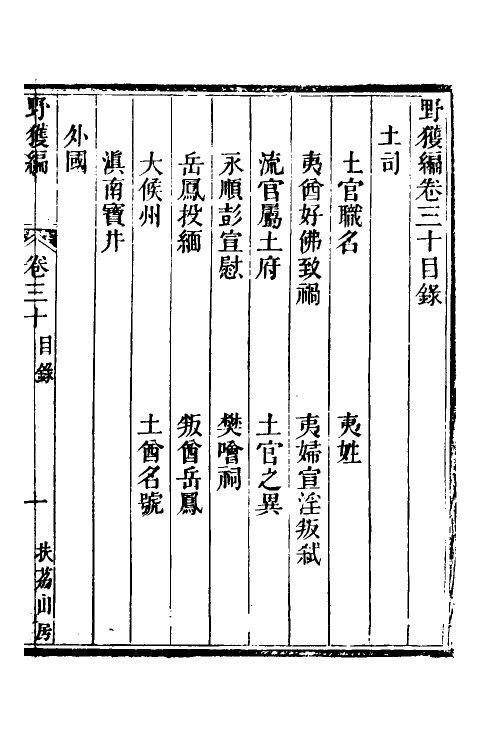 野獲編卷三十目錄
土司
土官職名 夷姓
夷酋好佛致禍 夷婦宣淫叛弑
流官屬土府 土官之異
永順彭宣慰 樊噲祠
岳鳳投緬 叛酋岳鳳
大候州 土酋名號
滇南寶井
外國
野獲編 卷三十 目錄 一 扶荔山房